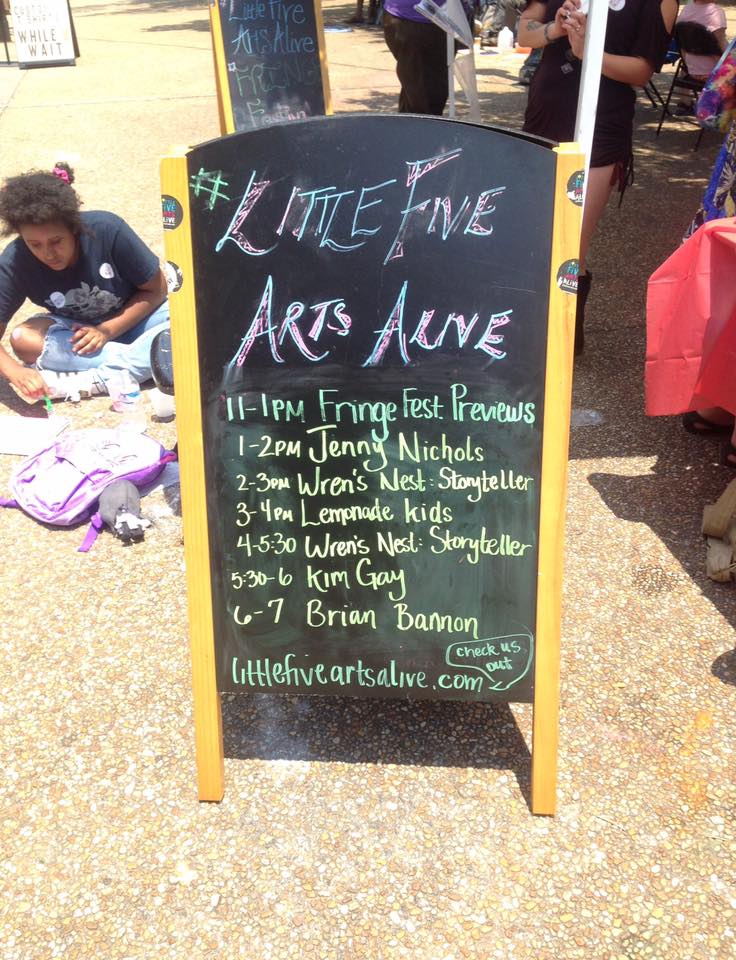 WHILE U
WAIT
Little Five
Arts Alive
FRINGE
#LITTLE FIVE
ARTS ALIVE
11-1PM Fringe Fest Previews
1-2PM Jenny Nichols
2-3PM Wren's Nest: Storyteller
3-4PM Lemonade kids
4-5:30 Wren's Nest: Storyteller
5:30-6 Kim Gay
6-7 Brian Bannon
check us
out
littlefiveartsalive.com